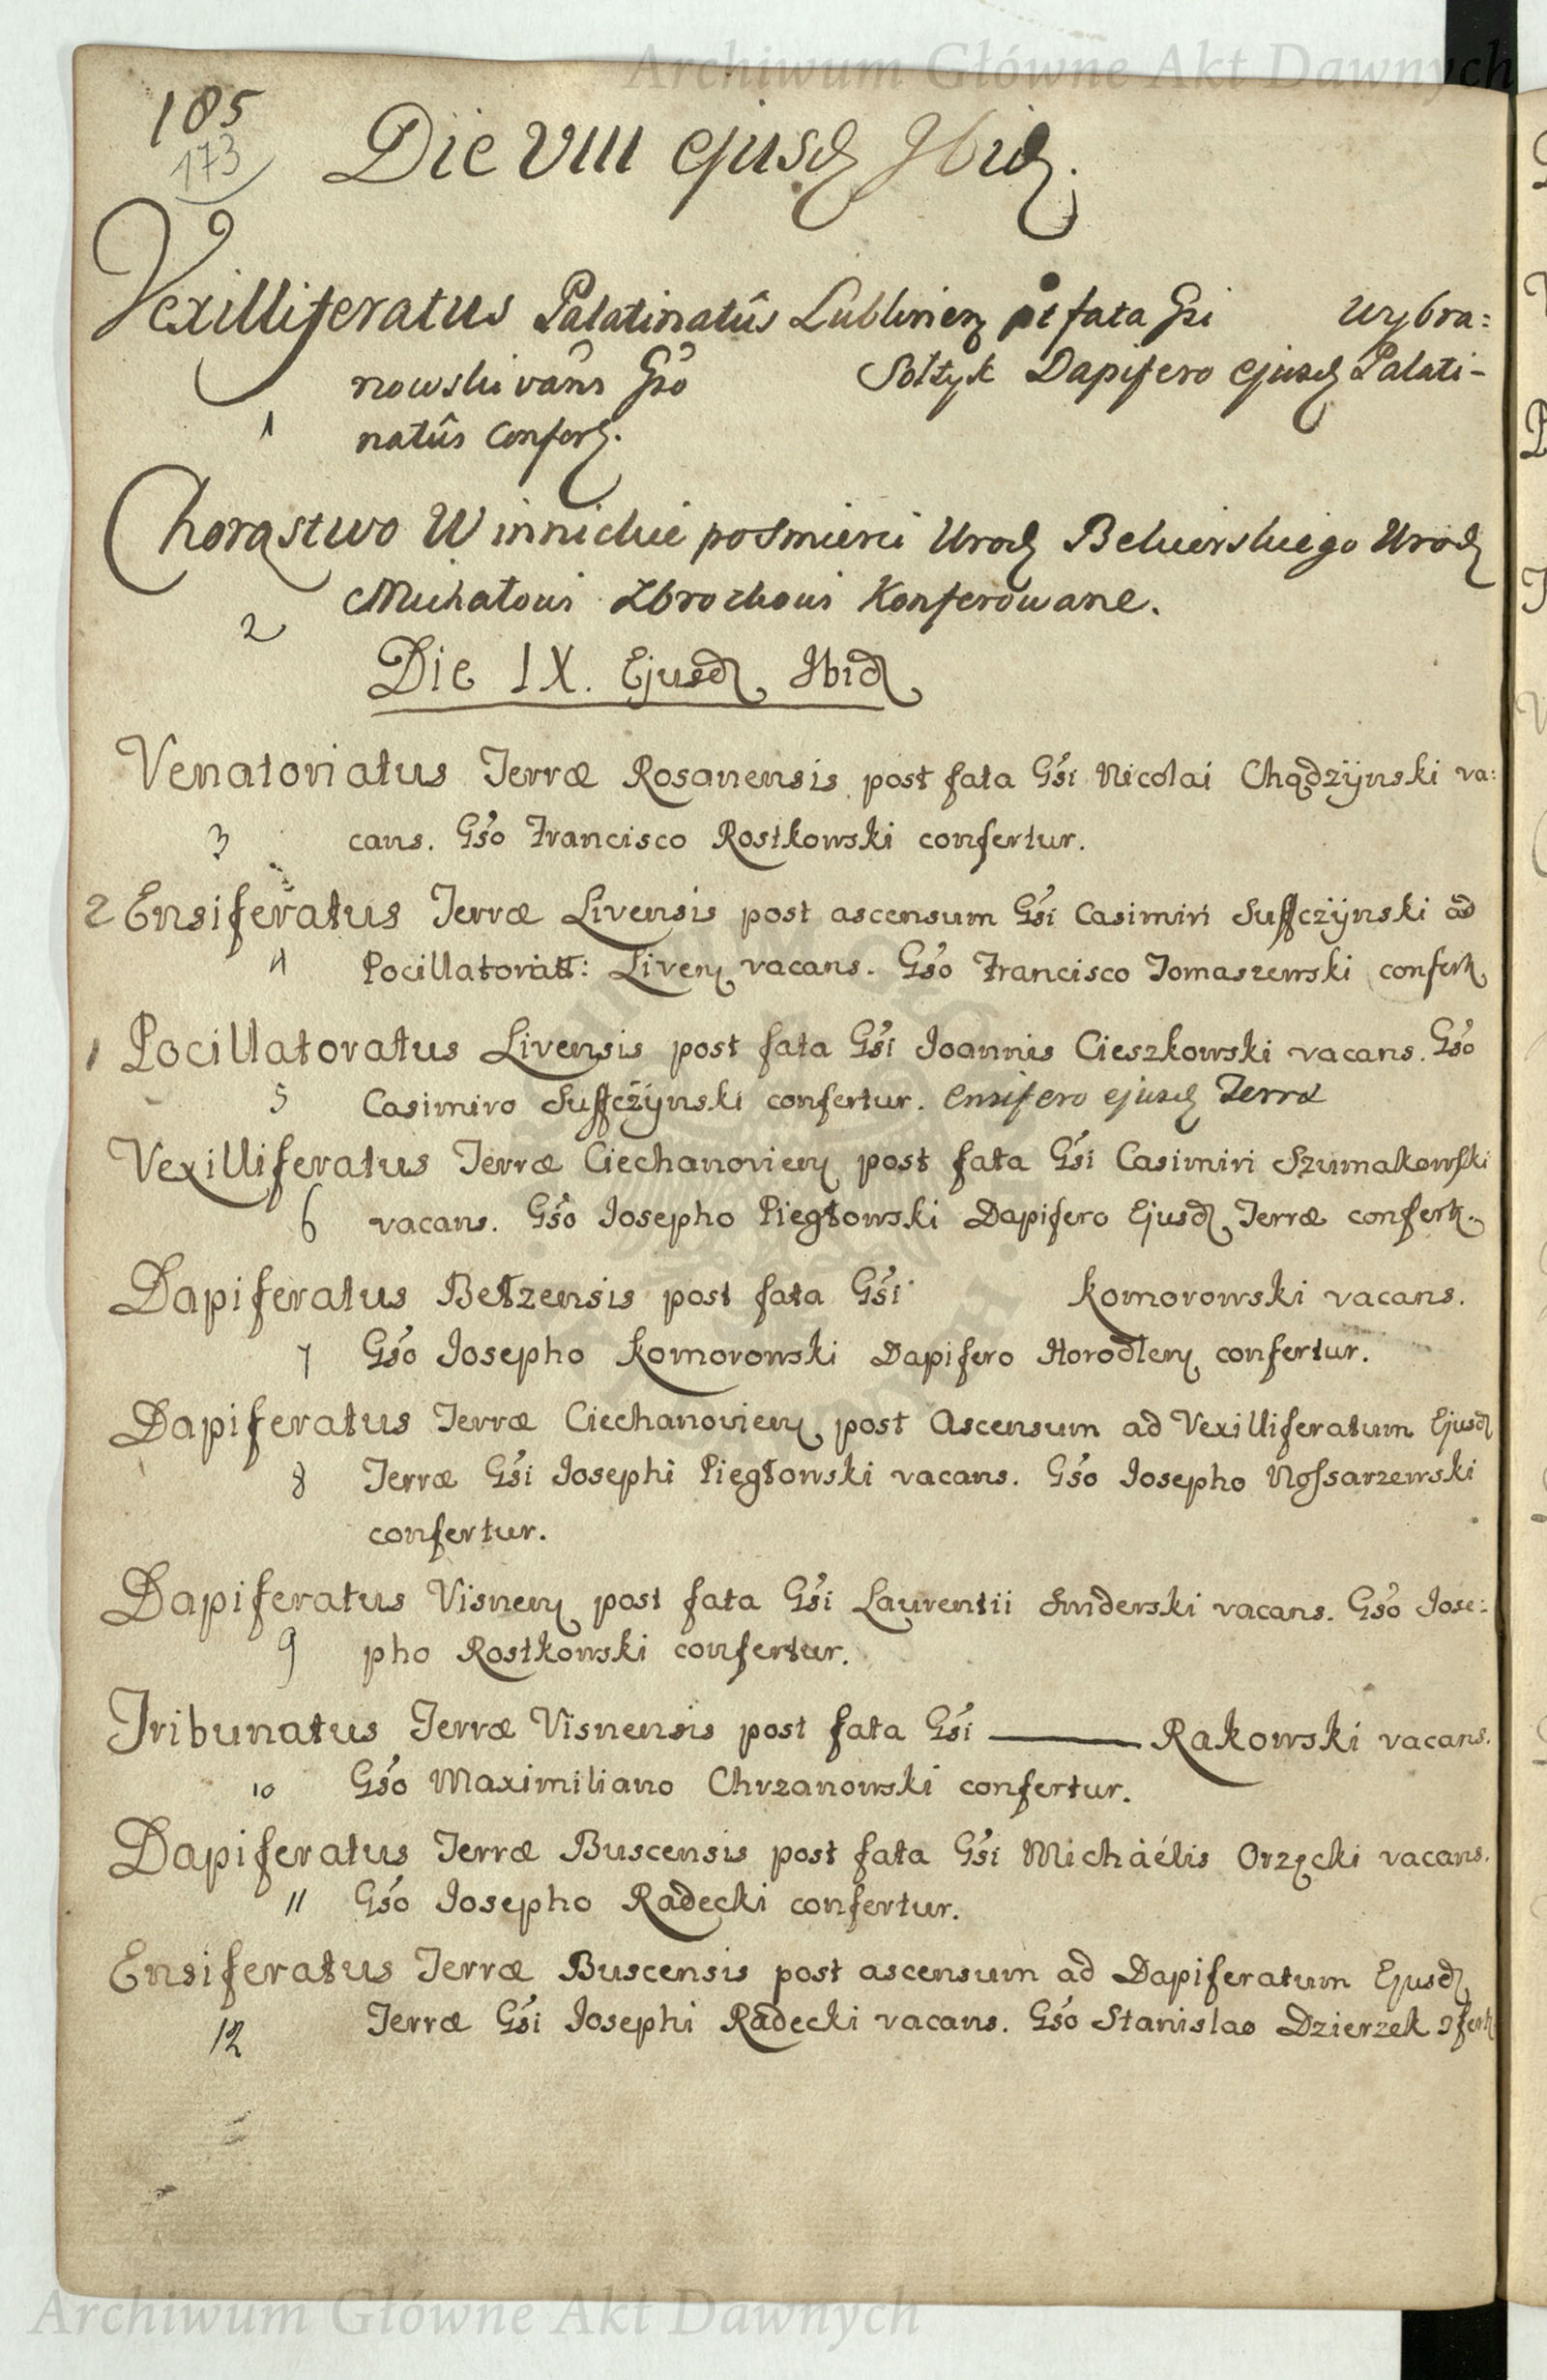 Archiwum Główne Akt Dawnych
185
173
Die VIII ejusd Ibid.
Vexilliferatus Palatinatûs Lublinen pt fata Gsi Wybra:
nowski vans Gso Sołtyk Dapifero ejusd Palati-
1
natûs Confert.
Chorąstwo Winnickie po Smierci Urod Urod
Michałowi Zbrochowi Konferowane.
2
Die IX. Ejusd Ibid
Venatoriatus Terræ Rosanensis post fata Gsi Nicolai Chądzÿnski va:
3 cans. Gso Francisco Rostkowski confertur.
2 Ensiferatus Terræ Livensis post ascensum Gsi Casimiri Suffczÿnski ad
4 Pocillatoriatt: Liven vacans. Gso Francisco Tomaszewski confert
1 Pocillatoratus Livensis post fata Gsi Joannis Cieszkowski vacans. Gso
5 Casimiro Suffczÿnski confertur. Ensifero ejusd Terræ
Vexilliferatus Terræ Ciechanovien post fata Gsi Casimiri Szumakowski
6 vacans. Gso Josepho Piegłowski Dapifero Ejusd Terræ confert.
Dapiferatus Bełzensis post fata Gsi Komorowski vacans.
7 Gso Josepho Komorowski Dapifero Horodlen confertur.
Dapiferatus Terræ Ciechanovien post Ascensum ad Vexilliferatum Ejusd
8 Terræ Gsi Josephi Piegłowski vacans. Gso Josepho Nossarzewski
confertur.
Dapiferatus Visnen post fata Gsi Laurentii Swiderski vacans. Gso Jose:
9 pho Rostkowski confertur.
Tribunatus Terræ Visnensis post fata Gsi — Rakowski vacans.
10 Gso Maximiliano Chrzanowski confertur.
Dapiferatus Terræ Buscensis post fata Gsi Michaélis Orzęcki vacans.
11 Gso Josepho Radecki confertur.
Ensiferatus Terræ Buscensis post ascensum ad Dapiferatum Ejusd
12 Terræ Gsi Josephi Radecki vacans. Gso Stanislao Dzierzek
Archiwum Główne Akt Dawnych